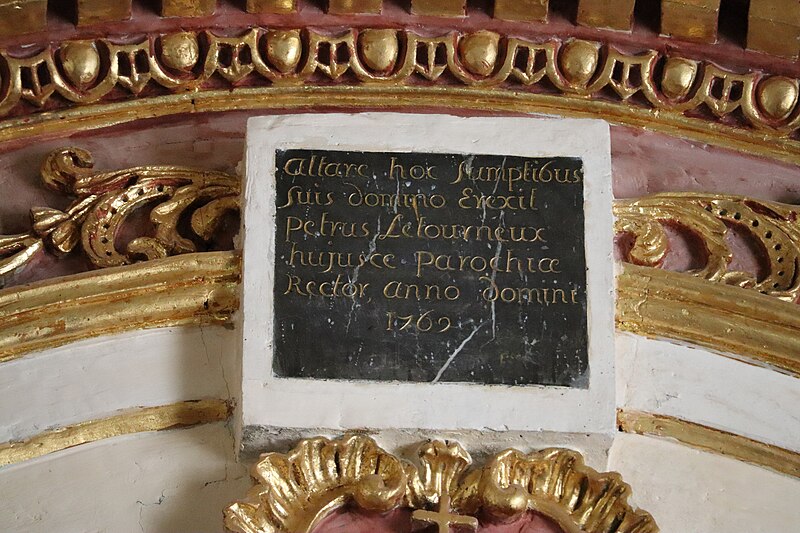 altare hoc sumptibus
suis domino Erexit
petrus Letourneux
hujusce parochiæ
Rector anno domini
1769